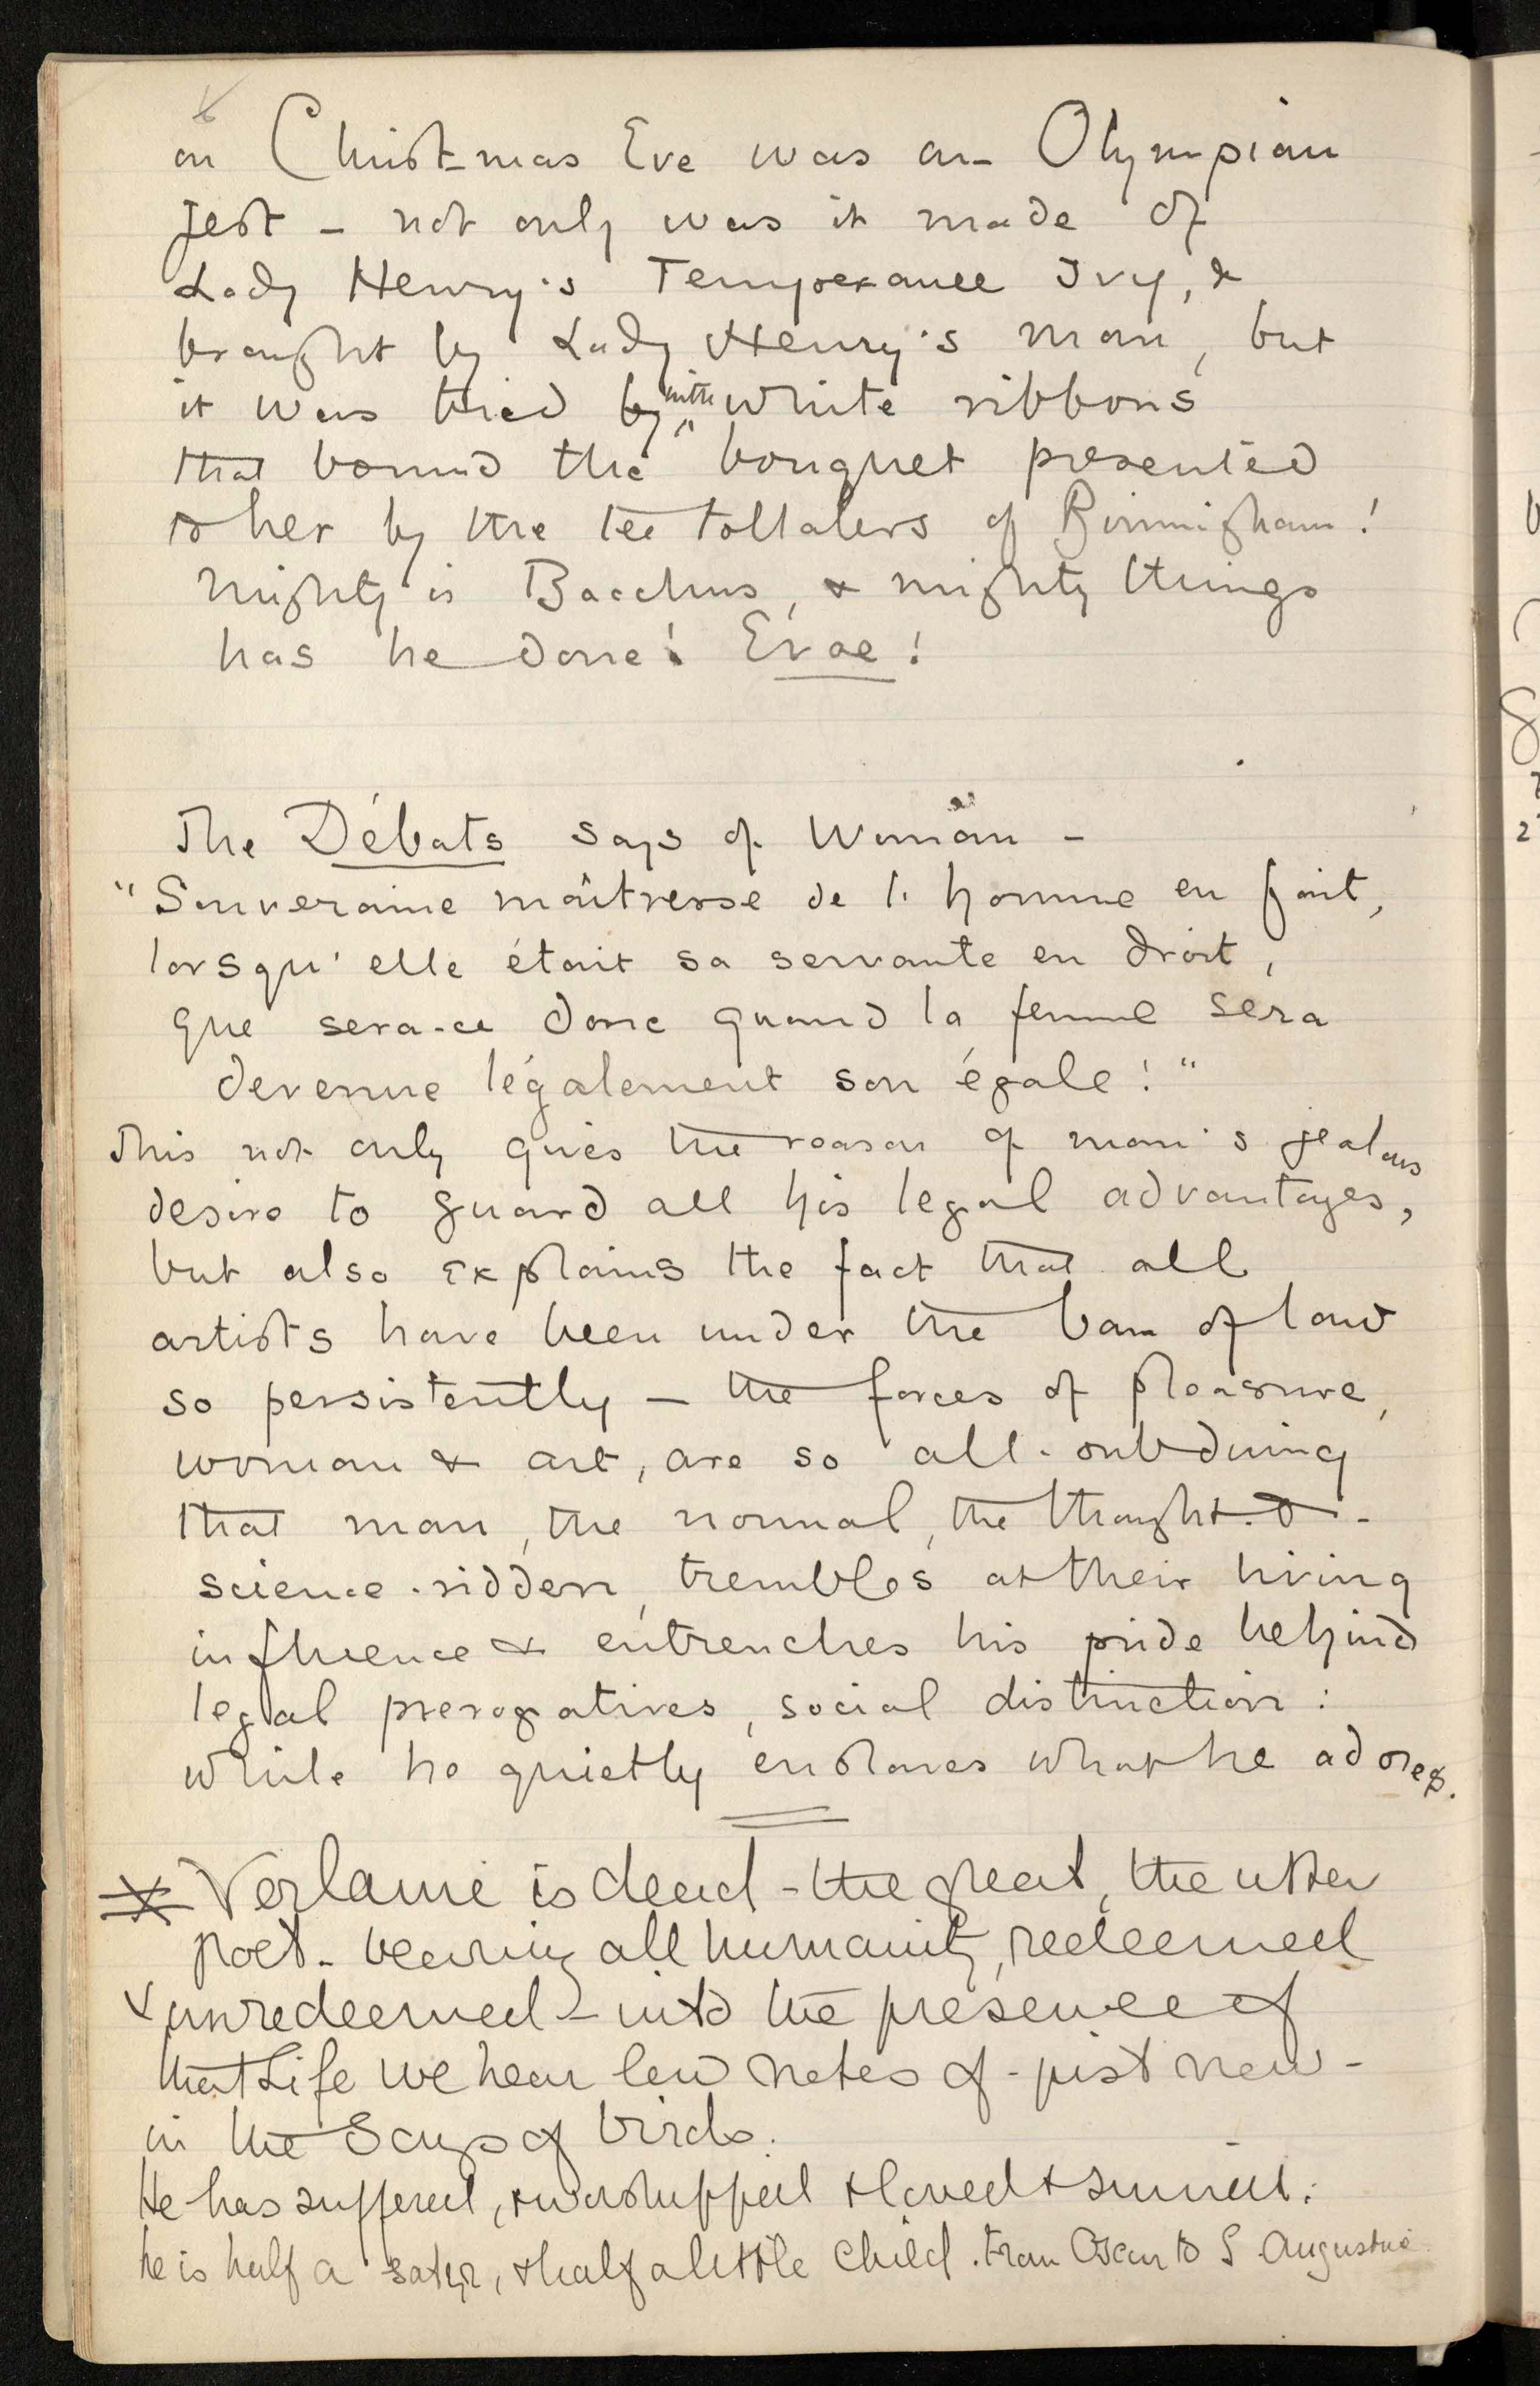 6
on Christmas Eve was an Olympian
jest – not only was it made of
Lady Henry's Temperance Ivy, &
brought by Lady Henry's man, but
it was tied by with white ribbons
that bound the bouquet presented
to her by the tee totlalers of Birmingham!
Mighty is Bacchus, & mighty things
has he done! Evoe!
The Débats says of Woman –
"Souveraine maîtresse de l'homme en fait,
lorsqu'elle était sa servante en droit,
que sera-ce donc quand la femme sera
devenue légalement son égale!"
This not only gives the reason of man's jealous
desire to guard all his legal advantages,
but also explains the fact that all
artists have been under the ban of law
so persistently – the forces of pleasure,
woman & art, are so all-subduing
that man, the normal, the thought- & -
science-ridden, trembles at their living
influence & entrenches his pride behind
legal prerogatives, social distinction:
while he quietly enslaves what he adores.
Verlaine is dead – the great, the utter
poet – bearing all humanity, redeemed
& unredeemed – into the presence of
that Life we hear low notes of – just now –
in the Songs of birds.
He has suffered, & worshipped & loved & sinned:
he is half a satyr, & half a little child. From Oscar to S. Augustine